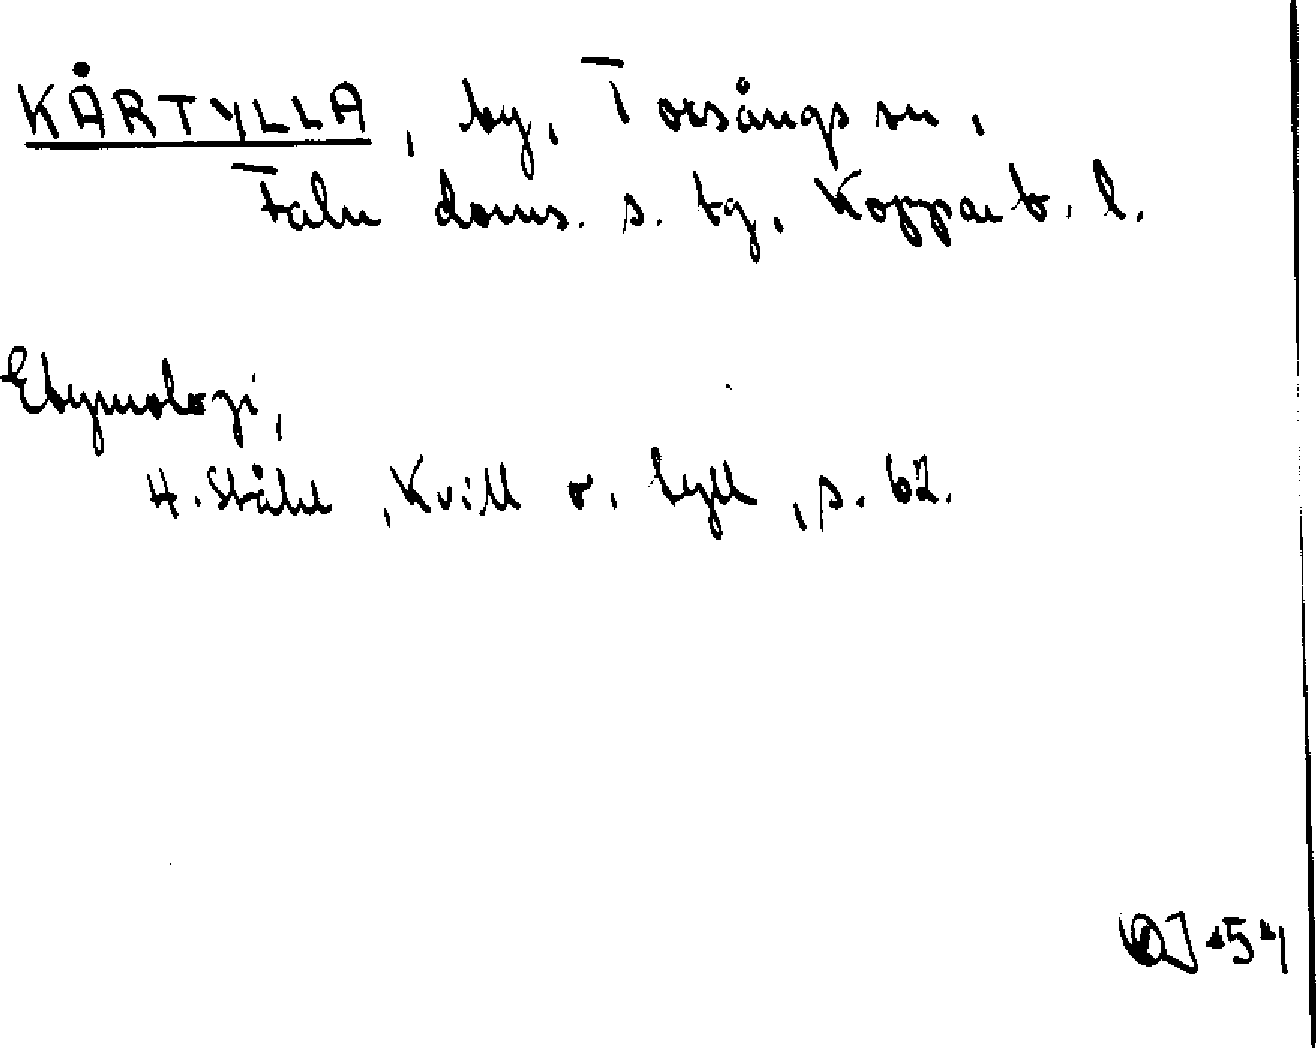 KÅRTYLLA, by, Torsångs sn,
Falu doms. s. tg, Kopparb. l.
Etymologi,
H. Ståhl, Kvill o. tyll, s. 62.